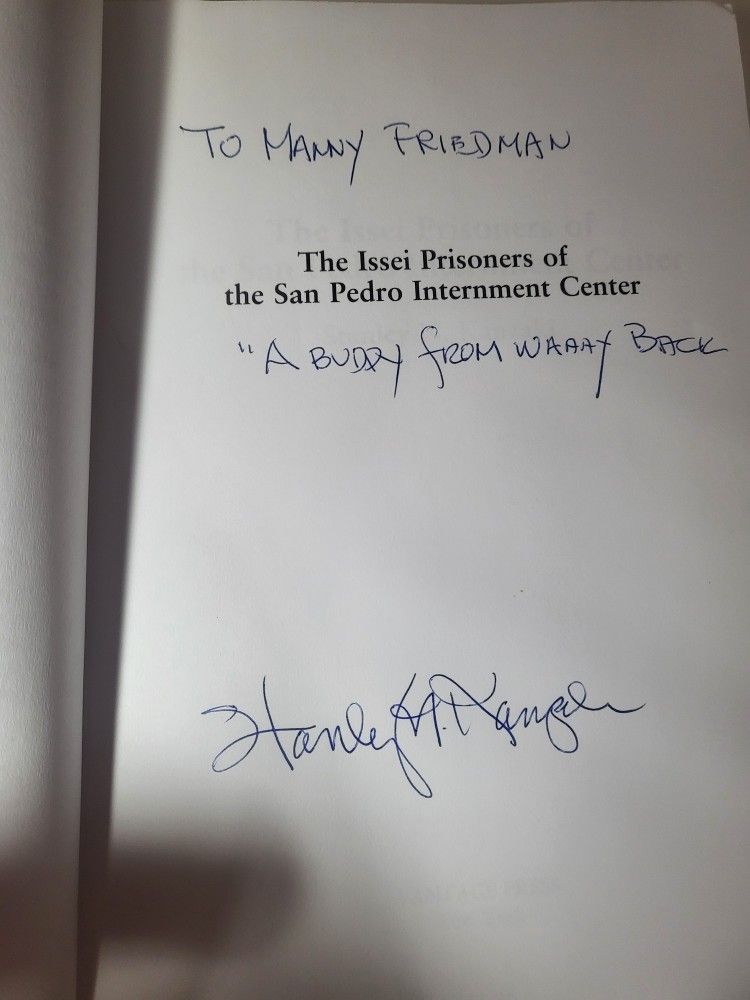 TO MANNY FRIEDMAN
The Issei Prisoners of
the San Pedro Internment Center
"A BUDDY FROM WAAAY BACK
Stanley M.